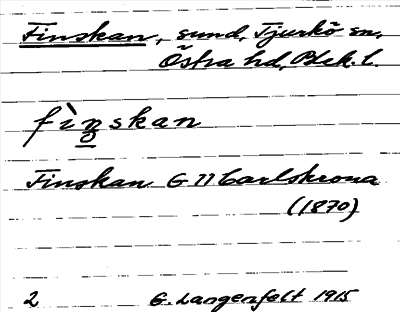 Finskan, sund, Tjurkö sn,
Östra hd, Blek. l.
fìn̥skan
Finskan G 77 Carlskrona
(1870)
2 G. Langenfelt 1915